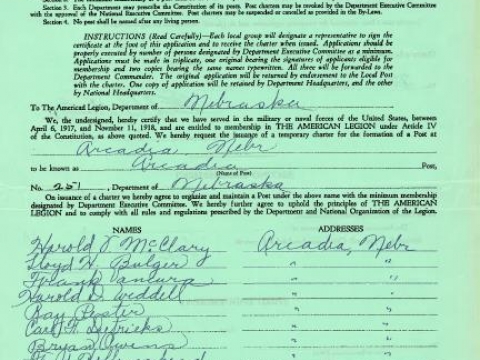 Section 3. Each Department may prescribe the Constitution of its posts. Post charters may be revoked by the Department Executive Committee
with the approval of the National Executive Committee. Post charters may be suspended or cancelled as provided in the By-Laws.
Section 4. No post shall be named after any living person.
INSTRUCTIONS (Read Carefully)—Each local group will designate a representative to sign the
certificate at the foot of this application and to receive the charter when issued. Applications should be
properly executed by number of persons designated by Department Executive Committee as a minimum.
Applications must be made in triplicate, one original bearing the signatures of applicants eligible for
membership and two copies bearing the same names typewritten. All three will be forwarded to the
Department Commander. The original application will be returned by endorsement to the Local Post
with the charter. One copy of application will be retained by Department Headquarters, and the other
by National Headquarters.
To The American Legion, Department of Nebraska
We, the undersigned, hereby certify that we have served in the military or naval forces of the United States, between
April 6, 1917, and November 11, 1918, and are entitled to membership in THE AMERICAN LEGION under Article IV
of the Constitution, as above quoted. We hereby request the issuance of a temporary charter for the formation of a Post at
Arcadia Nebr
to be known as Arcadia Post,
(Name of Post)
No. 251, Department of Nebraska
On issuance of a charter we hereby agree to organize and maintain a Post under the above name with the minimum membership
designated by Department Executive Committee. We hereby further agree to uphold the principles of THE AMERICAN
LEGION and to comply with all rules and regulations prescribed by the Department and National Organization of the Legion.
NAMES ADDRESSES
Harold J McClary Arcadia, Nebr
Lloyd H. Bulger " "
Frank Vancura " "
Harold D. Weddell " "
Ray Pester " "
Carl Dietricks " "
Bryan Owens " "
" "